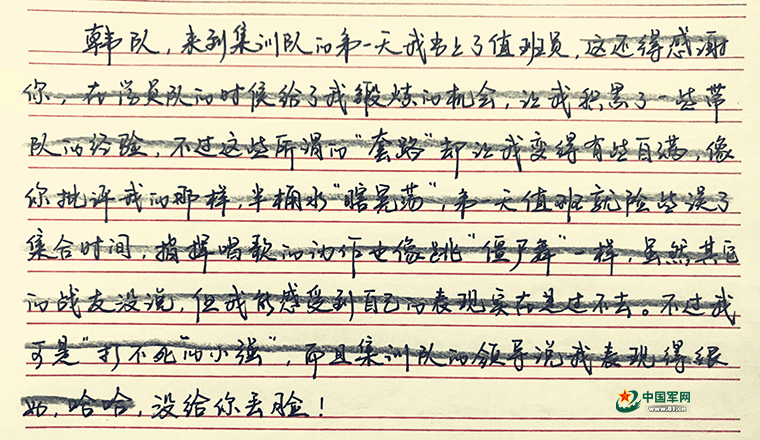 韩队，来到集训队的第一天我当上了值班员，这还得感谢
你，在学员队的时候给了我锻炼的机会，让我积累了一些带
队的经验，不过这些所谓的“套路”却让我变得有些自满，像
你批评我的那样，半桶水“瞎晃荡”，第一天值班就险些误了
集合时间，指挥唱歌的动作也像跳“僵尸舞”一样，虽然其它
的战友没说，但我能感受到自己的表现实在是过不去。不过我
可是“打不死的小强”，而且集训队的领导说我表现得很
好，哈哈，没给你丢脸！
中国军网
www.81.cn